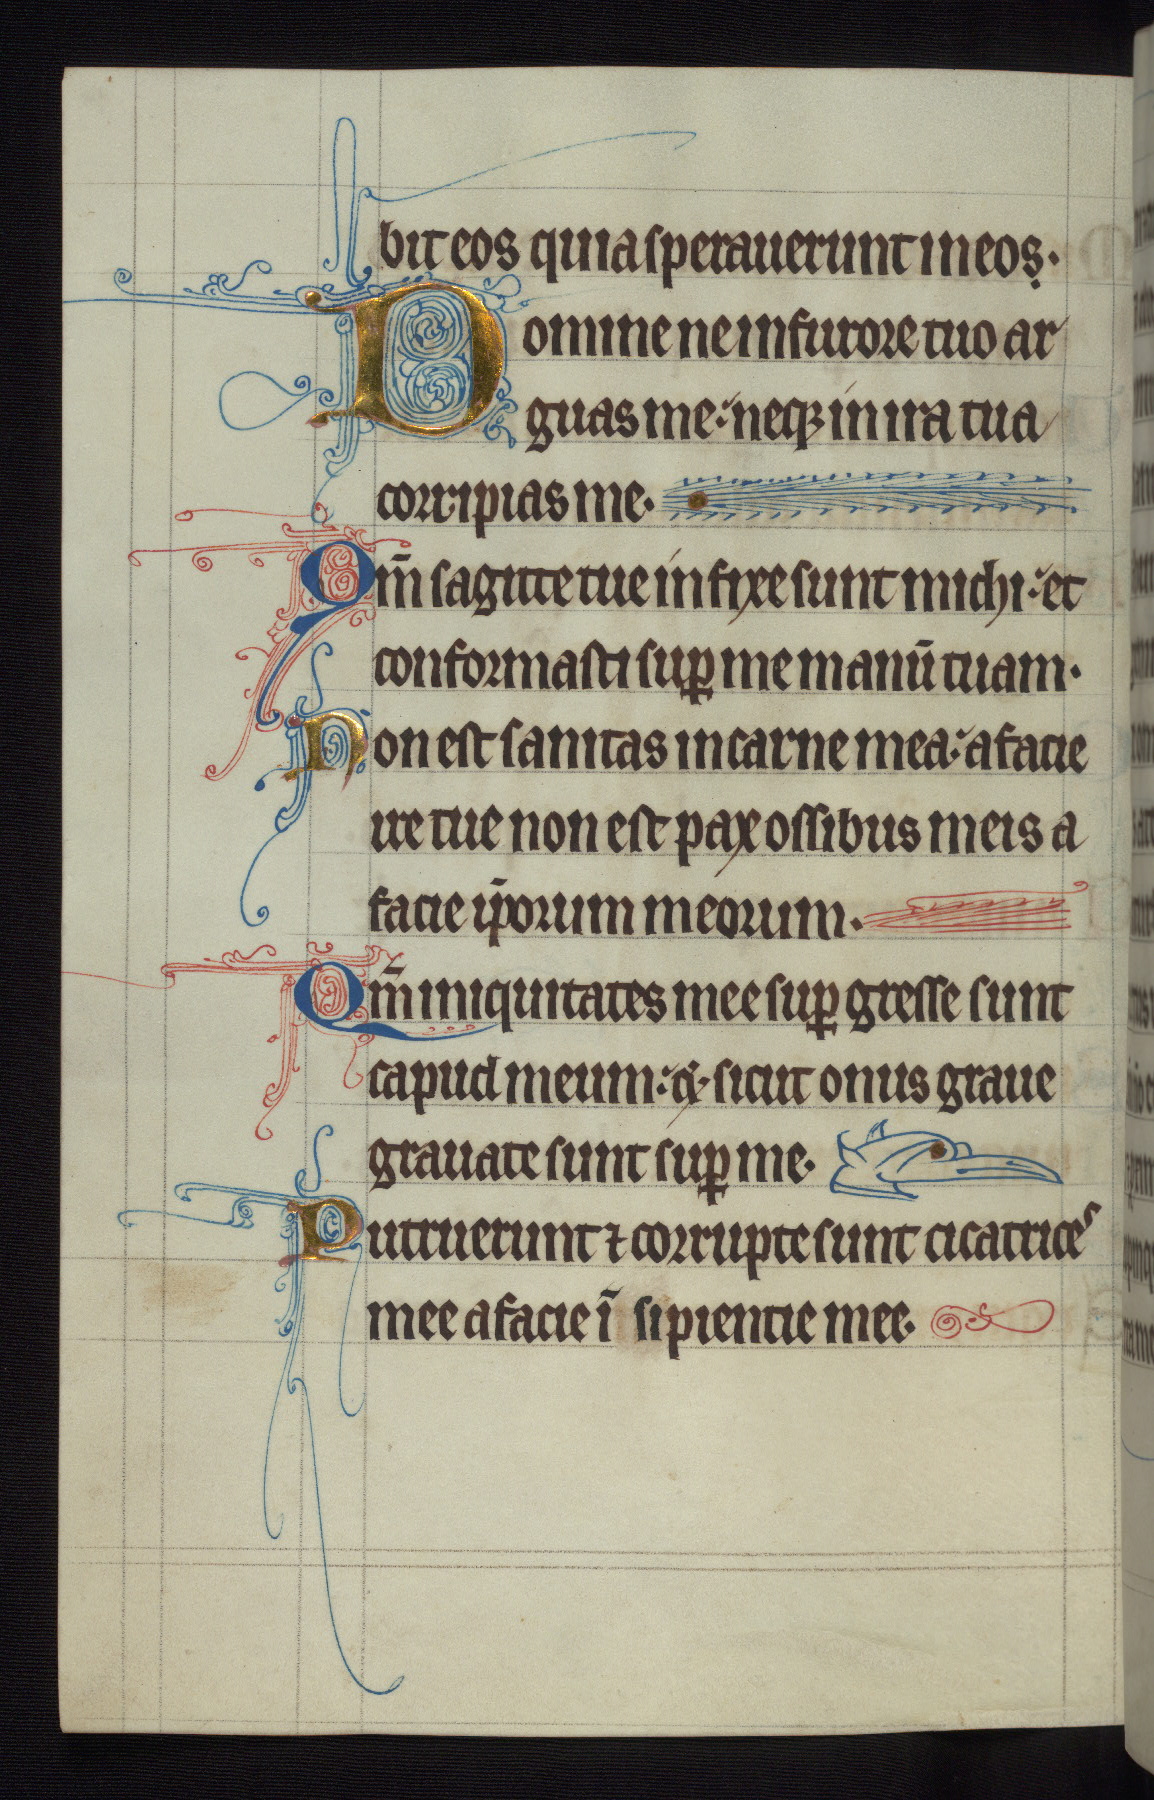 bit eos quia sperauerunt in eoṣ.
Domine ne in furore tuo ar
guas me: neqꝫ in ira tua
corripias me.
Qm̄ sagitte tue infixe sunt michi: et
confirmasti suꝑ me manū tuam.
Non est sanitas in carne mea: a facie
ire tue non est pax ossibus meis a
facie ip̄orum meorum.
Qm̄ iniquitates mee suꝑ gresse sunt
capud meum: & sicut onus graue
grauate sunt suꝑ me.
Putruerunt ⁊ corrupte sunt cicatrices
mee a facie ī sipientie mee.